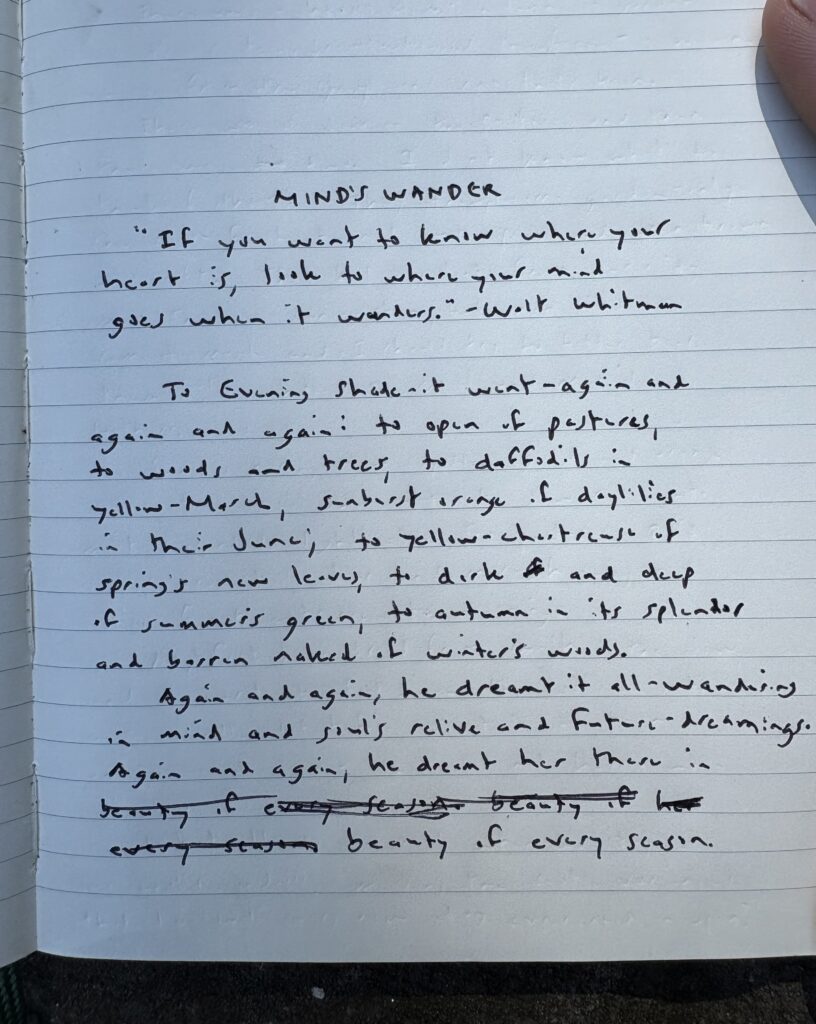 MIND'S WANDER
"If you want to know where your
heart is, look to where your mind
goes when it wanders." - Walt Whitman
To Evening Shade-it went-again and
again and again: to open of pastures,
to woods and trees, to daffodils in
yellow-March, sunburst orange of daylilies
in their June; to yellow-chartreuse of
spring's new leaves, to dark and deep
of summer's green, to autumn in its splendor
and barren naked of winter's woods.
Again and again, he dreamt it all-wandering
in mind and soul's relive and future-dreamings.
Again and again, he dreamt her there in
beauty of every season beauty of her
every season beauty of every season.